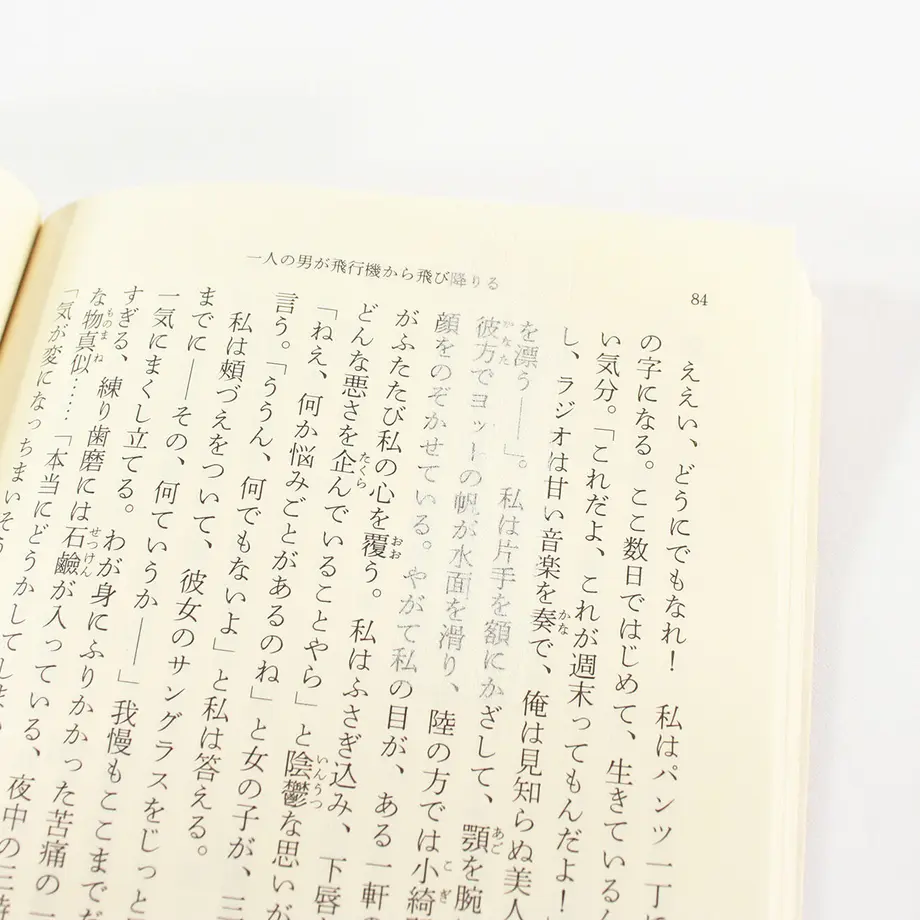 84
一人の男が飛行機から飛び降りる
ええい、どうにでもなれ! 私はパンツ一丁
の字になる。ここ数日ではじめて、生きている
い気分。「これだよ、これが週末ってもんだよ!
し、ラジオは甘い音楽を奏で、俺は見知らぬ美人
を漂う――」。私は片手を額にかざして、顎を腕
彼方でヨットの帆が水面を滑り、陸の方では小綺
顔をのぞかせている。やがて私の目が、ある一軒の
がふたたび私の心を覆う。私はふさぎ込み、下唇
どんな悪さを企んでいることやら」と陰鬱な思いが
「ねえ、何か悩みごとがあるのね」と女の子が、三
言う。「ううん、何でもないよ」と私は答える。
私は頬づえをついて、彼女のサングラスをじっと
までに――その、何ていうか――」我慢もここまでだ
一気にまくし立てる。わが身にふりかかった苦痛の一
すぎる、練り歯磨には石鹼が入っている、夜中の三時
な物真似……「本当にどうかしてしまい
「気が変になっちまいそう